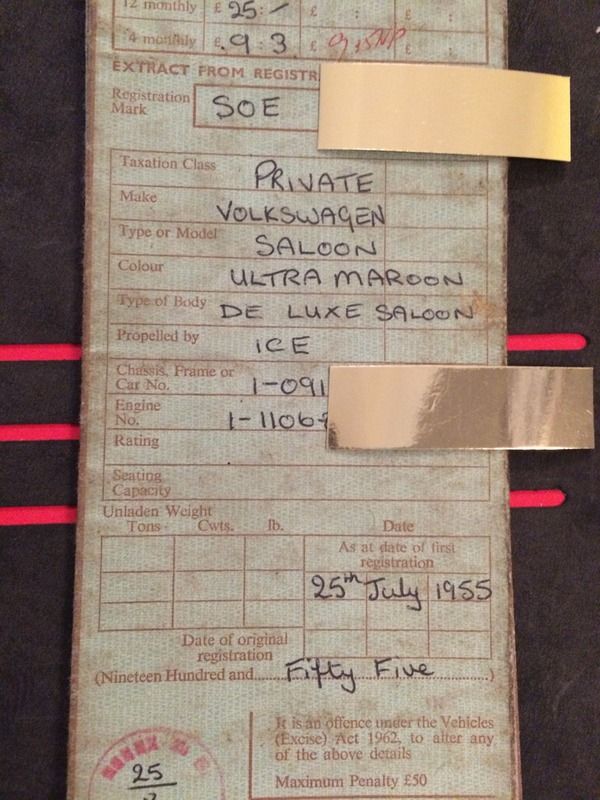 12 monthly £ 25:- £ : £ :
4 monthly £ 9:3 £ £ :
EXTRACT FROM REGISTR
Registration Mark SOE
Taxation Class PRIVATE
Make VOLKSWAGEN
Type or Model SALOON
Colour ULTRA MAROON
Type of Body DE LUXE SALOON
Propelled by ICE
Chassis, Frame or
Car No. 1-091
Engine
No. 1-1106
Rating
Seating
Capacity
Unladen Weight
Tons Cwts. lb. Date
As at date of first
registration
25th July 1955
Date of original
registration
(Nineteen Hundred and Fifty Five)
It is an offence under the Vehicles
(Excise) Act 1962, to alter any
of the above details
Maximum Penalty £50
25